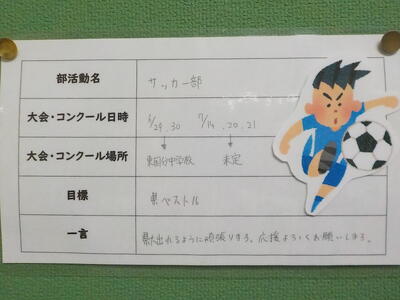 部活動名 サッカー部
大会・コンクール日時 6/29.30 7/14.20.21
大会・コンクール場所 東国分中学校 未定
目標 県ベスト16
一言 県大出れるように頑張ります。応援よろしくお願いします。